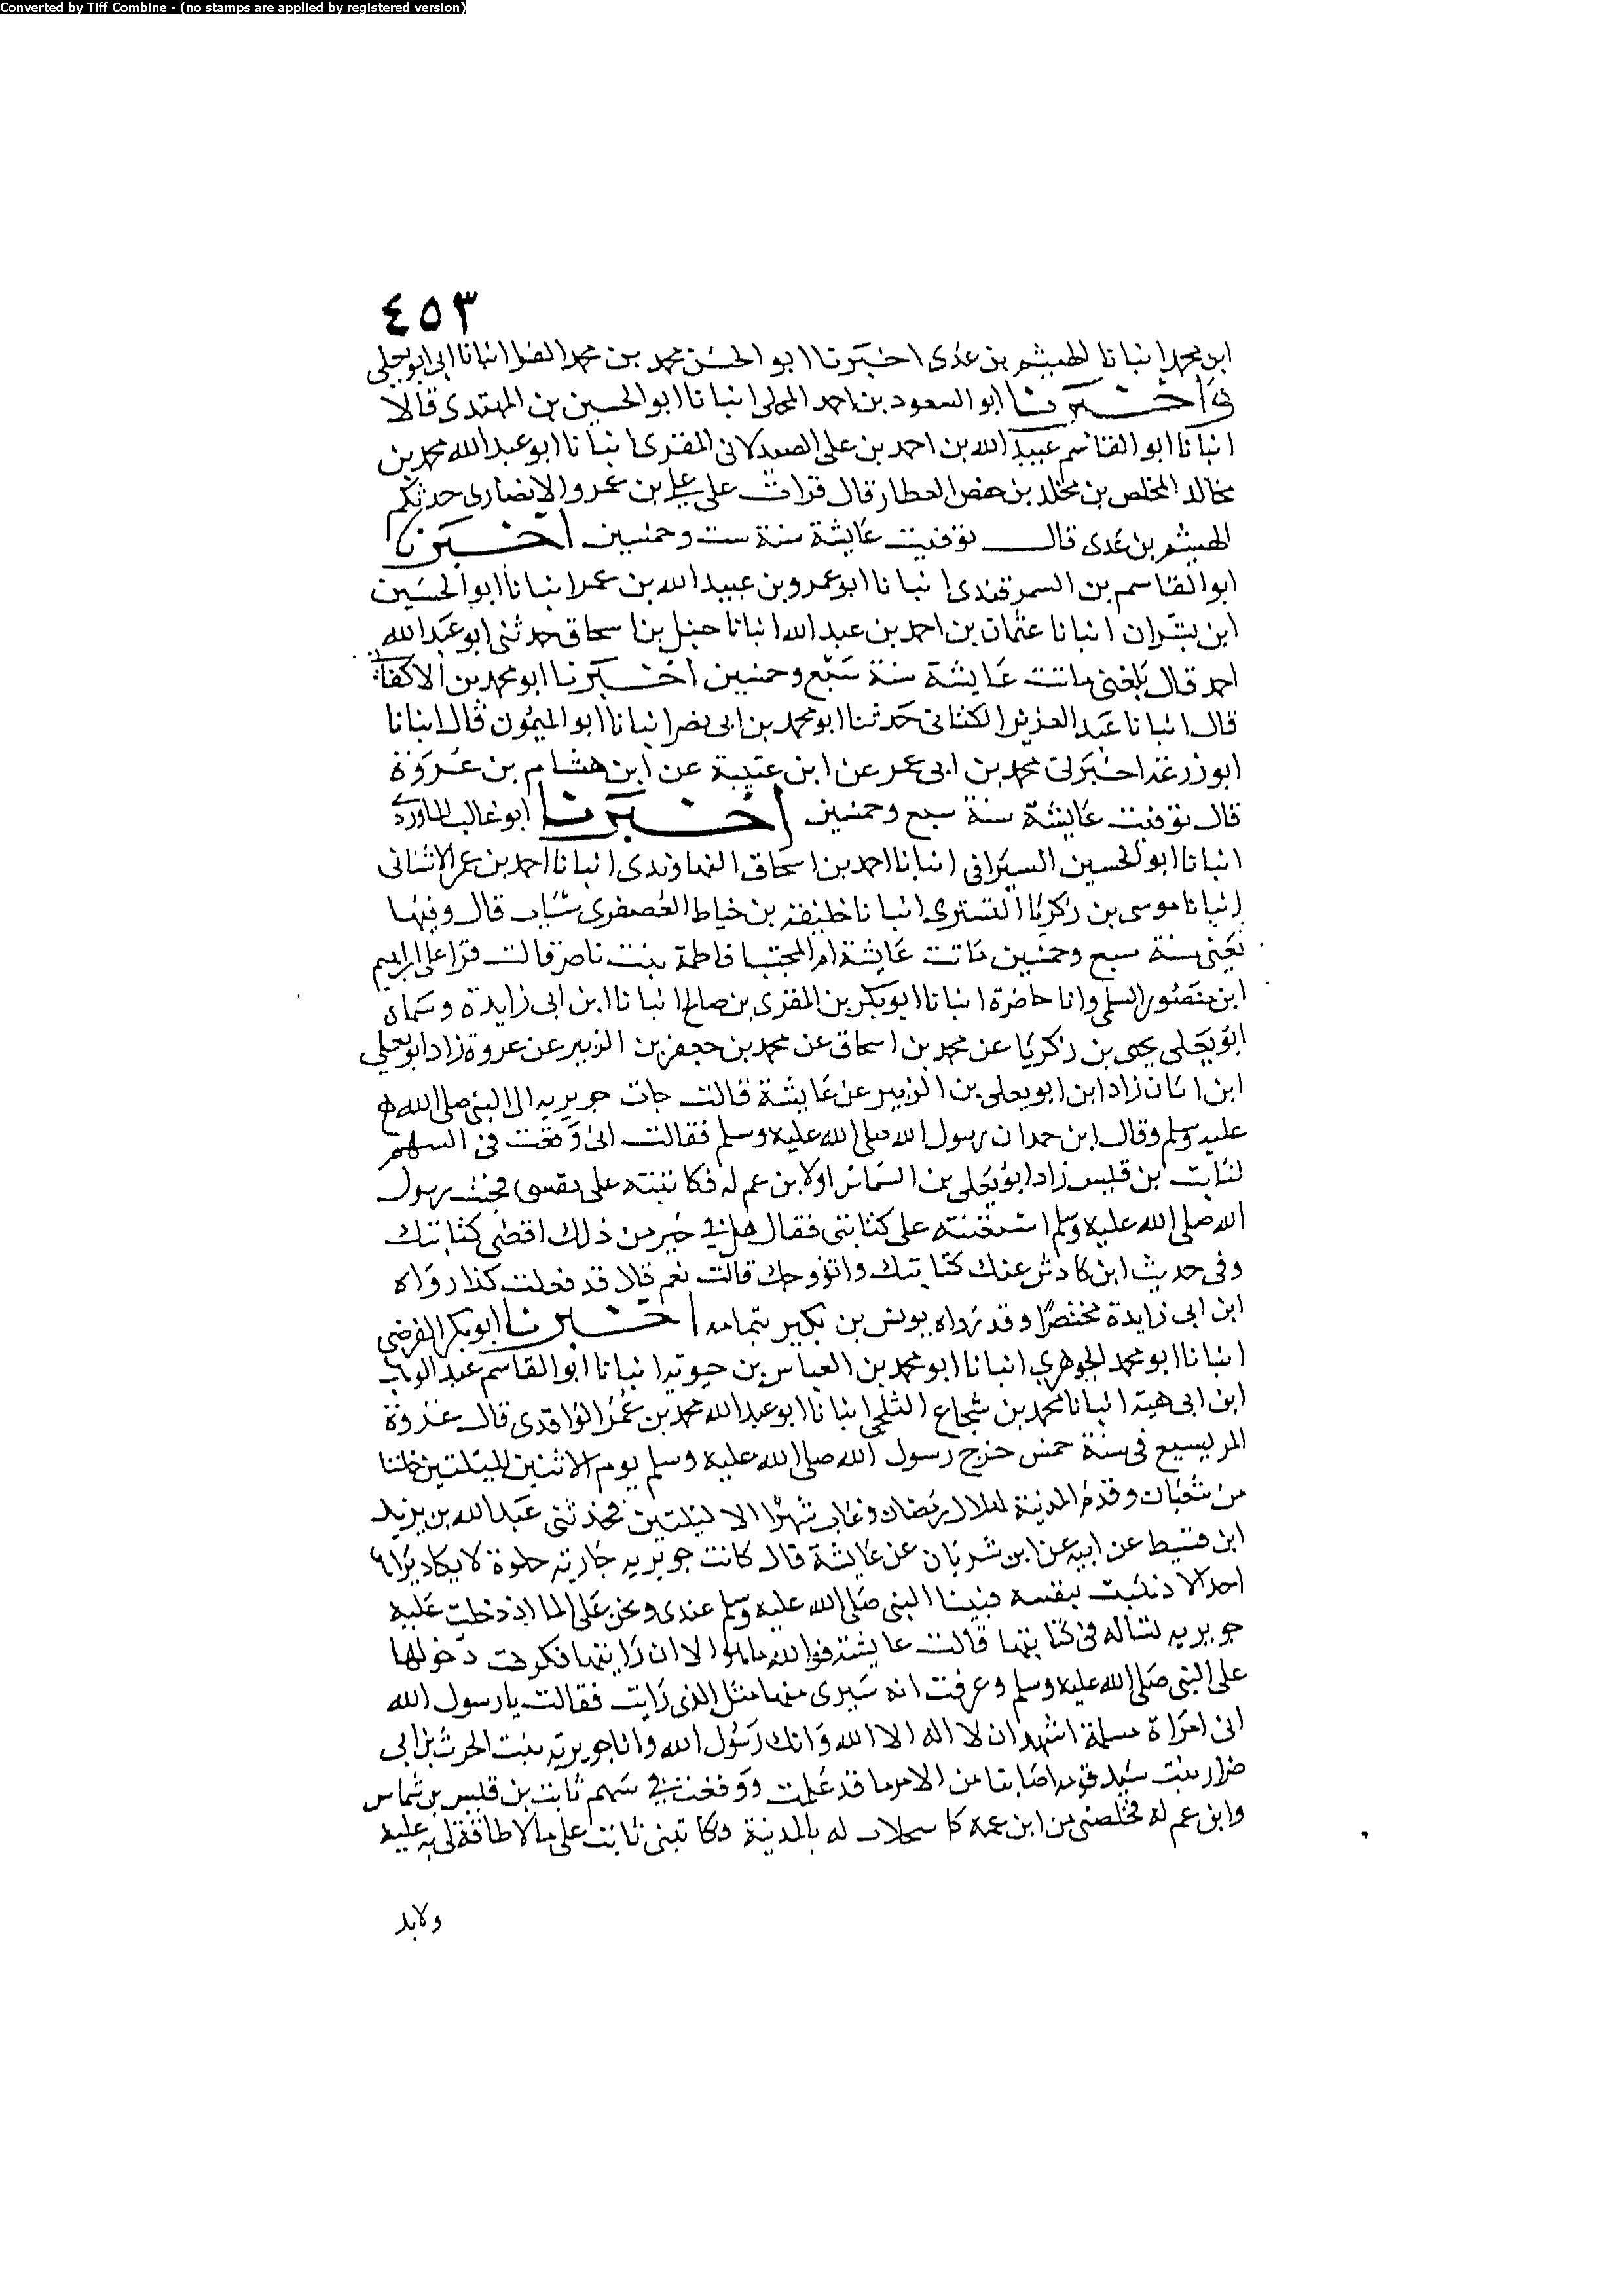 Converted by Tiff Combine - (no stamps are applied by registered version)
٤٥٣
ابن محمد انبانا الهيثم بن عدى اخبرنا ابو الحسن محمد بن محمد الفرا انبانا ابى ابو يعلى
واخبرنا ابو السعود بن احمد المحلى انبانا ابو الحسين بن المهتدى قالا
انبانا ابو القاسم عبيد الله بن احمد بن على الصيدلانى المقرى انبانا ابو عبد الله محمد بن
مخالد المخلص بن مخلد بن حفص العطار قال قرات على على بن عمرو الانصارى حدثكم
الهيثم بن عدى قال توفيت عايشة سنة ست وخمسين اخبرنا
ابو القاسم بن السمرقندى انبانا ابو عمرو بن عبيد الله بن عمر انبانا ابو الحسين
ابن بشران انبانا عثمان بن احمد بن عبد الله انبانا حنبل بن اسحاق حدثنى ابو عبد الله
احمد قال بلغنى ماتت عايشة سنة سبع وخمسين اخبرنا ابو محمد بن الاكفانى
قال انبانا عبد العزيز الكتانى حدثنا ابو محمد بن ابى نصر انبانا ابو الميمون قال انبانا
ابو زرعة اخبرنى محمد بن ابى عمر عن ابن عتيبة عن ابن هشام بن عروة
قال توفيت عايشة سنة سبع وخمسين اخبرنا ابو غالب الماوردى
انبانا ابو الحسين السيرافى انبانا احمد بن اسحاق النهاوندى انبانا احمد بن عمر الاشنانى
انبانا موسى بن زكريا التسترى انبانا خليفة بن خياط العصفرى شباب قال وفيها
يعنى سنة سبع وخمسين ماتت عايشة ام المجتبا فاطمة بنت ناصر قالت قرا على ابراهيم
ابن منصور السلمى وانا حاضرة انبانا ابو بكر بن المقرى بن صالح انبانا ابن ابى زايدة وسماه
ابو يعلى يحيى بن زكريا عن محمد بن اسحاق عن محمد بن جعفر بن الزبير عن عروة زاد ابو يعلى
ابن ابان زاد ابن ابو يعلى بن الزبير عن عايشة قالت جات جويريه الى النبى صلى الله
عليه وسلم وقال ابن حمدان رسول الله صلى الله عليه وسلم فقالت انى وقعت فى السهم
لثابت بن قيس زاد ابو يعلى بن الشماس اولا بن عم له فكاتبته على نفسى فجئت رسول
الله صلى الله عليه وسلم استعنته على كتابتى فقال هل فى خير من ذلك اقضى كتابتك
وفى حديث ابن كادش عنك كتابتك واتزوجك قالت نعم قال قد فعلت كذا رواه
ابن ابى زايدة مختصرا وقد رواه يونس بن بكير بتمامه اخبرنا ابو بكر الفرضى
انبانا ابو محمد الجوهرى انبانا ابو محمد بن العباس بن حيوته انبانا ابو القاسم عبد الوهاب
ابن ابى هيبة انبانا محمد بن شجاع الثلجى انبانا ابو عبد الله محمد بن عمر الواقدى قال غزوة
المريسيع فى سنة خمس خرج رسول الله صلى الله عليه وسلم يوم الاثنين لليلتين خلتا
من شعبان وقدم المدينة لهلال رمضان وغاب شهرا الا ليلتين فحدثنى عبد الله بن يزيد
ابن قسيط عن ابيه عن ابن شربان عن عايشة قال كانت جويريه جاريه حلوة لا يكاد يراها
احد الا ذهبت بنفسه فبينا النبى صلى الله عليه وسلم عندى ونحن على الما اذ دخلت عليه
جويريه تساله فى كتابتها قالت عايشة فوالله ما هو الا ان رايتها فكرهت دخولها
على النبى صلى الله عليه وسلم وعرفت انه سيرى منها مثل الذى رايت فقالت يا رسول الله
انى امراة مسلمة اشهد ان لا اله الا الله وانك رسول الله وانا جويريه بنت الحرث بن ابى
ضرار بنت سيد قومه اصابنا من الامر ما قد علمت ووقعت فى سهم ثابت بن قيس بن شماس
وابن عم له فخلصنى من ابن عمه كا سحلات له بالمدينة وكاتبنى ثابت على ما لا طاقة لى به عليه
ولابد